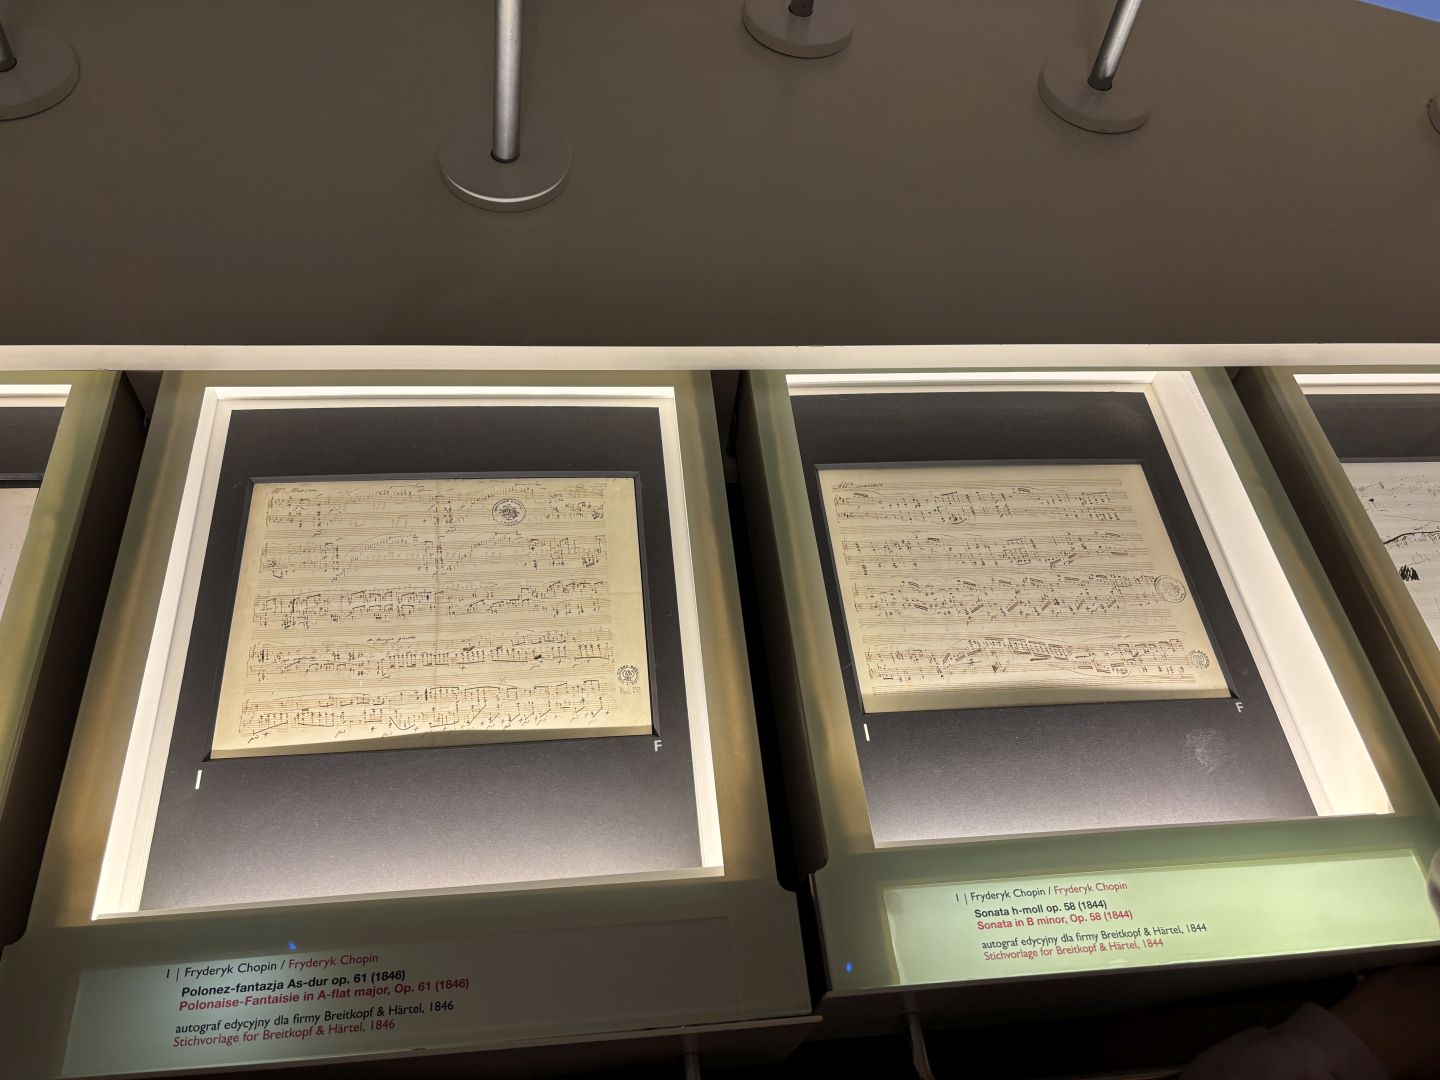 All° Maestoso
a tempo giusto
I
F
I | Fryderyk Chopin / Fryderyk Chopin
Polonez-fantazja As-dur op. 61 (1846)
Polonaise-Fantaisie in A-flat major, Op. 61 (1846)
autograf edycyjny dla firmy Breitkopf & Härtel, 1846
Stichvorlage for Breitkopf & Härtel, 1846
All° maestoso
I
F
I | Fryderyk Chopin / Fryderyk Chopin
Sonata h-moll op. 58 (1844)
Sonata in B minor, Op. 58 (1844)
autograf edycyjny dla firmy Breitkopf & Härtel, 1844
Stichvorlage for Breitkopf & Härtel, 1844